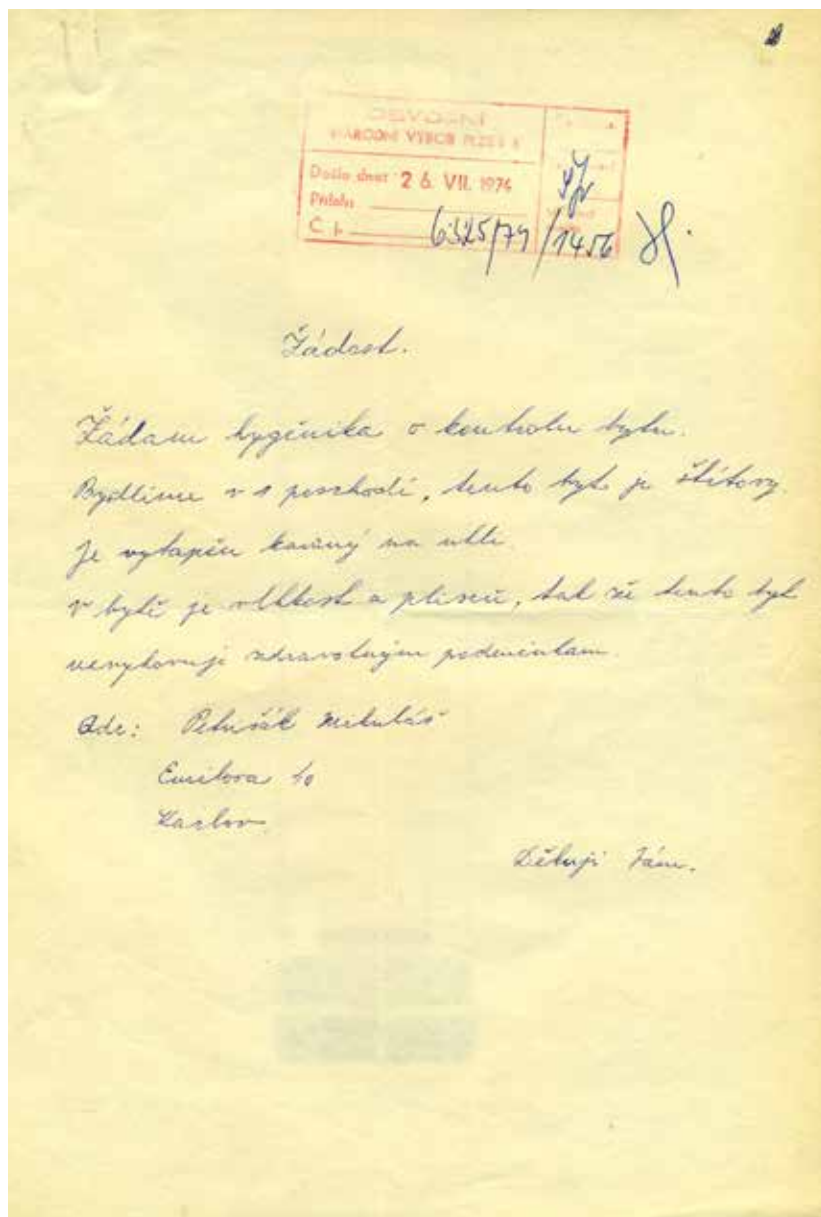 OBVODNÍ
NÁRODNÍ VÝBOR PLZEŇ
Došlo dne: 26. VII. 1974
Přílohy
Č. j. 6325/74 /1456
Žádost.
Žádam hygěnika o kontrolu bytu.
Bydlíme v 1 poschodí, tento byt je štítovy.
Je vytapěn kamný na uhlí.
v bytě je vlhkost a pliseň, tak že tento byt
nevyhovuje zdravotným podmínkam.
Adr: Petrušák Mikuláš
Emilova 10
Karlov
Děkuji Vám.